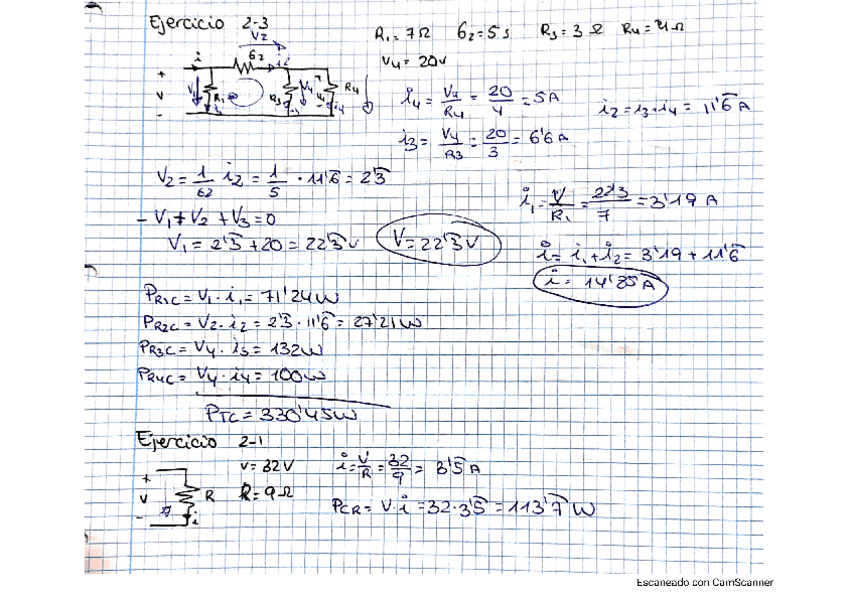 Ejercicio 2-3
R₁ = 7Ω   G₂ = 5 s   R₃ = 3 Ω   R₄ = 4Ω
V₄ = 20v
V₂
i G₂ i₂
+ V₁ R₁ R₃ V₄ R₄
V
- i₃ i₄
i₄ = V₄/R₄ = 20/4 = 5A
i₂ = i₃+i₄ = 11'6 A
i₃ = V₄/R₃ = 20/3 = 6'6 A
V₂ = 1/G₂ i₂ = 1/5 · 11'6 = 2'3
i₁ = V/R₁ = 22'3/7 = 3'19 A
- V₁ + V₂ + V₃ = 0
V₁ = 2'3 + 20 = 22'3 v   V = 22'3 v
i = i₁ + i₂ = 3'19 + 11'6
i = 14'85 A
PR1C = V₁ · i₁ = 71'24 W
PR2C = V₂ · i₂ = 2'3 · 11'6 = 27'21 W
PR3C = V₄ · i₃ = 132W
PR4C = V₄ · i₄ = 100W
PTC = 330'45W
Ejercicio 2-1
V = 32V   i = V/R = 32/9 = 3'5 A
+ V - R i   R = 9Ω
PCR = V · i = 32 · 3'5 = 113'7 W
Escaneado con CamScanner